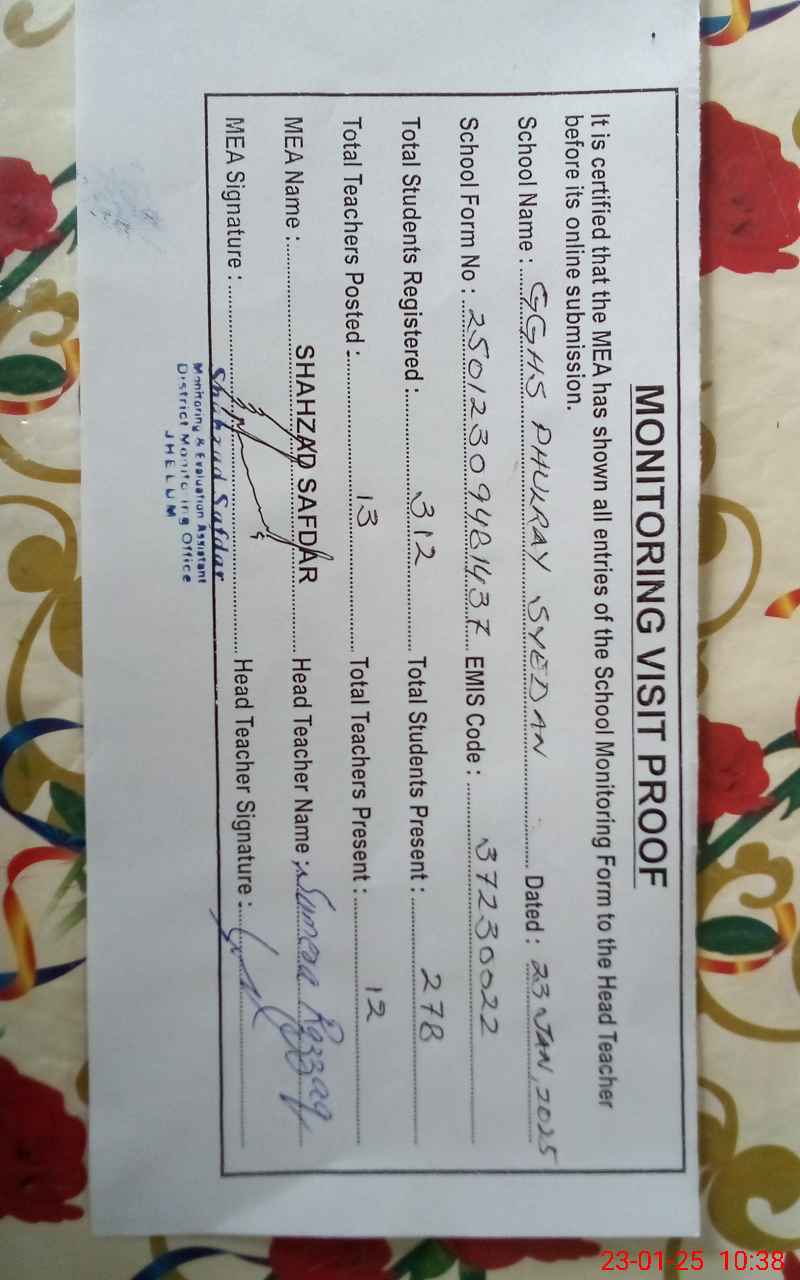 MONITORING VISIT PROOF
It is certified that the MEA has shown all entries of the School Monitoring Form to the Head Teacher
before its online submission.
School Name : GGHS PHULRAY SYEDAN Dated : 23 JAN, 2025
School Form No : 25012309481437 EMIS Code : 37230022
Total Students Registered : 312 Total Students Present : 278
Total Teachers Posted : 13 Total Teachers Present : 12
MEA Name : SHAHZAD SAFDAR Head Teacher Name : Sumera Razzaq
MEA Signature : Head Teacher Signature :
Shahzad Safdar
Monitoring & Evaluation Assistant
District Monitoring Office
JHELUM
23-01-25 10:38